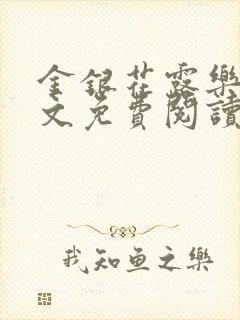 金銀花露樂
文免費閱讀
我知魚之樂